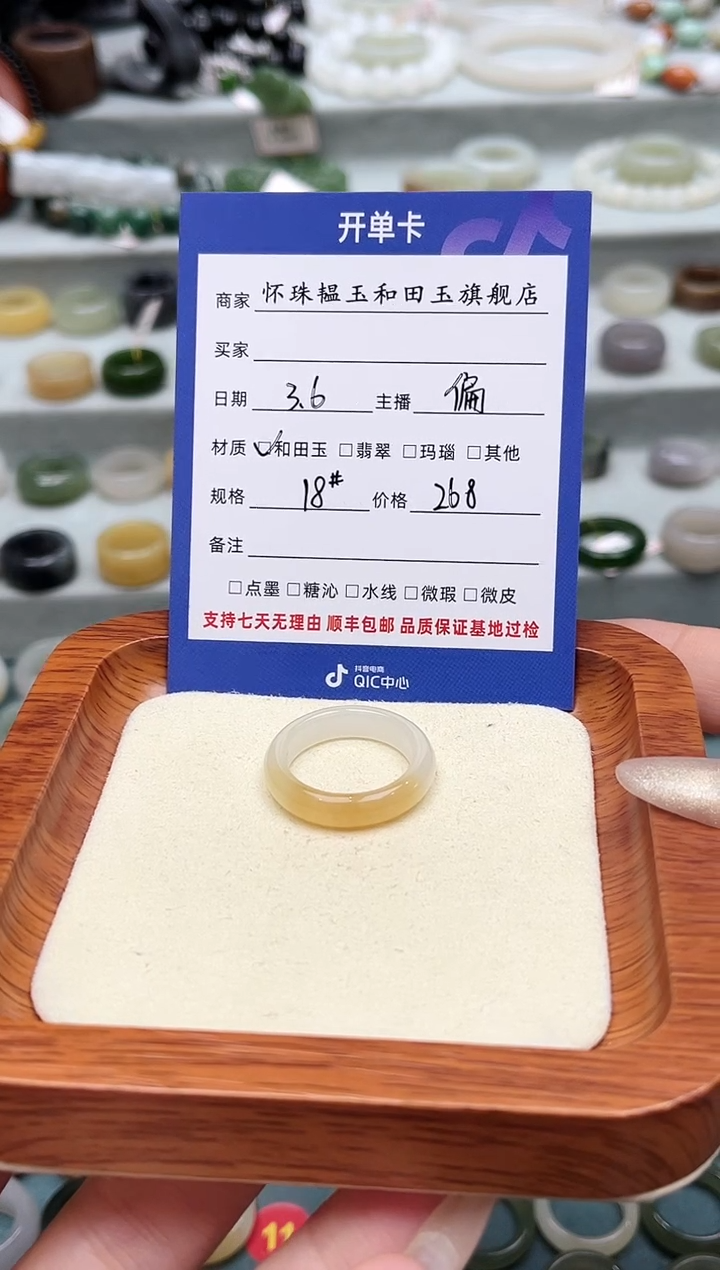 开单卡
商家 怀珠韫玉和田玉旗舰店
买家
日期 3.6 主播 偏
材质 ☑和田玉 □翡翠 □玛瑙 □其他
规格 18# 价格 268
备注
□点墨 □糖沁 □水线 □微瑕 □微皮
支持七天无理由 顺丰包邮 品质保证基地过检
抖音电商
QIC中心
11